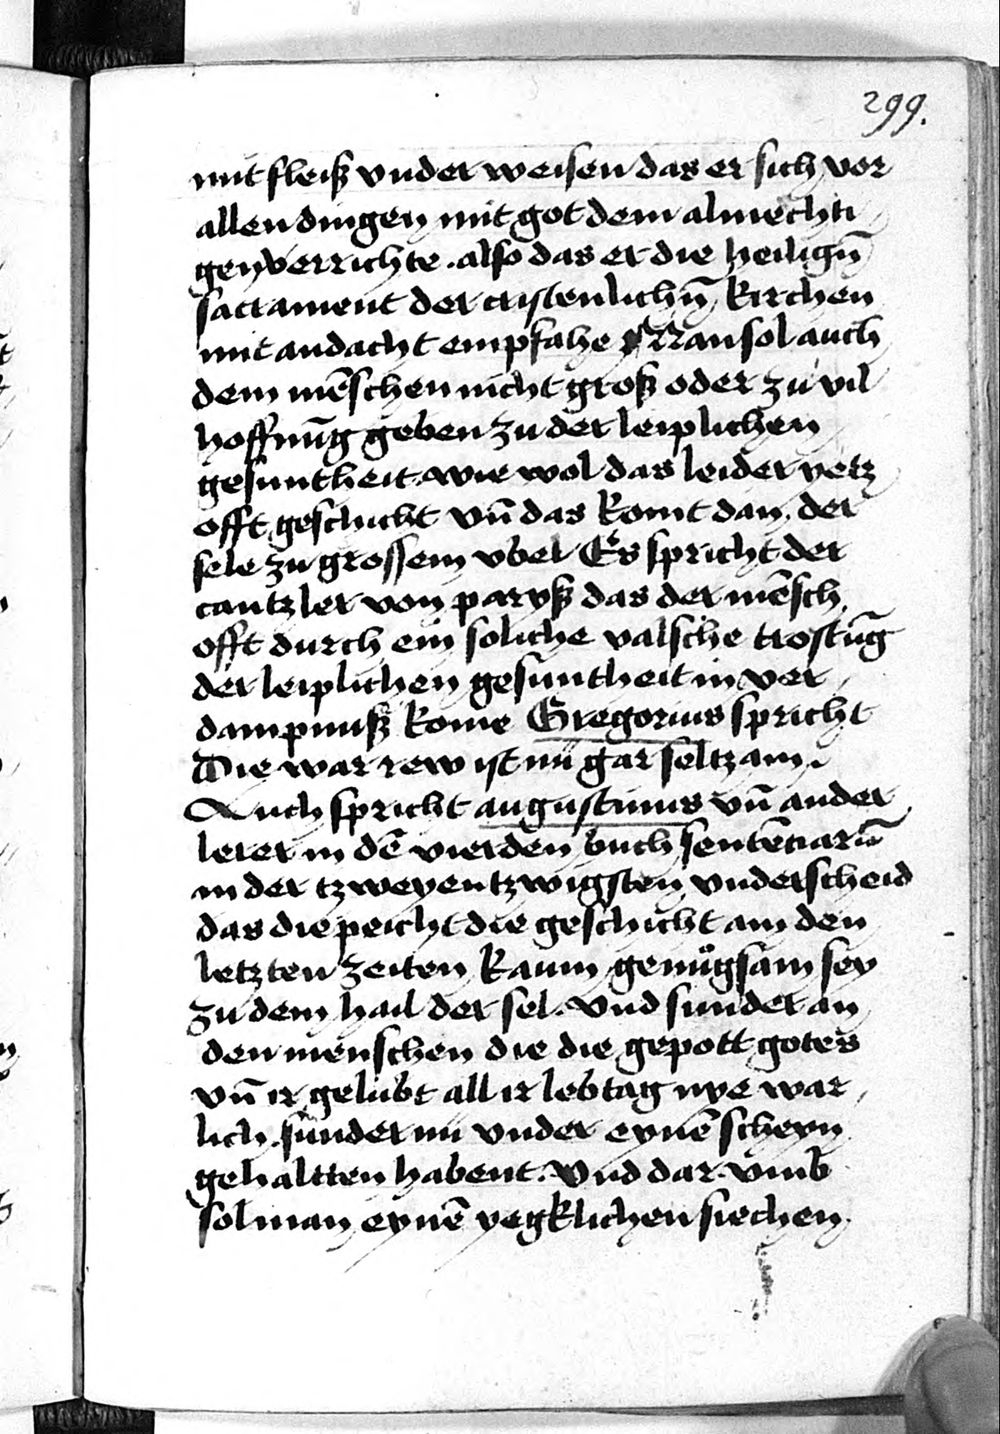 299.
mit fleiß vnder weisen das er sich vor
allen dingen mit got dem almechti
gen verrichte . also das er die heilign̄
sacrament der cristenlichn̄ kirchen
mit andacht empfahe Man sol auch
dem mēschen nicht groß oder zu vil
hoffnūg geben zu der leiplichen
gesuntheit . wie wol das leider yetz
offt geschicht vn̄ das komt dan der
sele zu grossem vbel Es spricht der
cantzler von paryß das der mēsch
offt durch ein soliche valsche trostūg
der leiplichen gesuntheit in ver
dampnuß kome Gregorius spricht
Die war rew ist nū gar seltzam .
Auch spricht augustinus vn̄ ander
lerer in dē vierden buch sentēciarū
in der tzweyentzwigsten vnderscheid
das die peicht die geschicht am den
letzten zeiten kaum genůgsam sey
zu dem hail der sel . vnd sunder an
den menschen die die gepott gotes
vn̄ ir gelubt all ir lebtag nye war
lich . sunder nu vnder eynē scheyn
gehaltten habent . Vnd dar vmb
sol man eynē yegklichen siechen